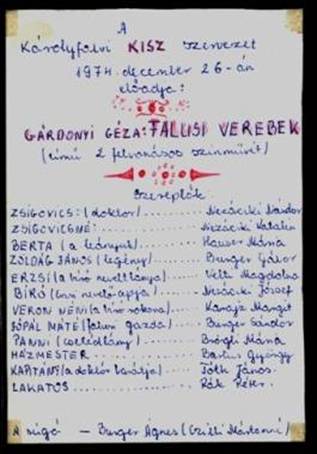 A
Károlyfalvi KISZ szervezet
1974. december 26-án
előadja:
GÁRDONYI GÉZA: FALUSI VEREBEK
(című 2 felvonásos színművét)
Szereplők
ZSIGOVICS: (doktor) Nezáciki Nándor
ZSIGOVICSNÉ: Nezáciki Katalin
BERTA (a leányuk) Hauser Mária
ZÖLDÁG JÁNOS (legény) Burger Gábor
ERZSI (a bíró nevelt lánya) Velti Magdolna
BÍRÓ (Erzsi nevelő apja) Nezáciki József
VERON NÉNI (a bíró rokona) Kanajz Margit
SÓPÁL MÁTÉ (falusi gazda) Burger Sándor
PANNI (cselédlány) Brógli Mária
HÁZMESTER György
KAPITÁNY (a doktor barátja) Tóth János.
LAKATOS Rák Péter.
A súgó – Burger Ágnes